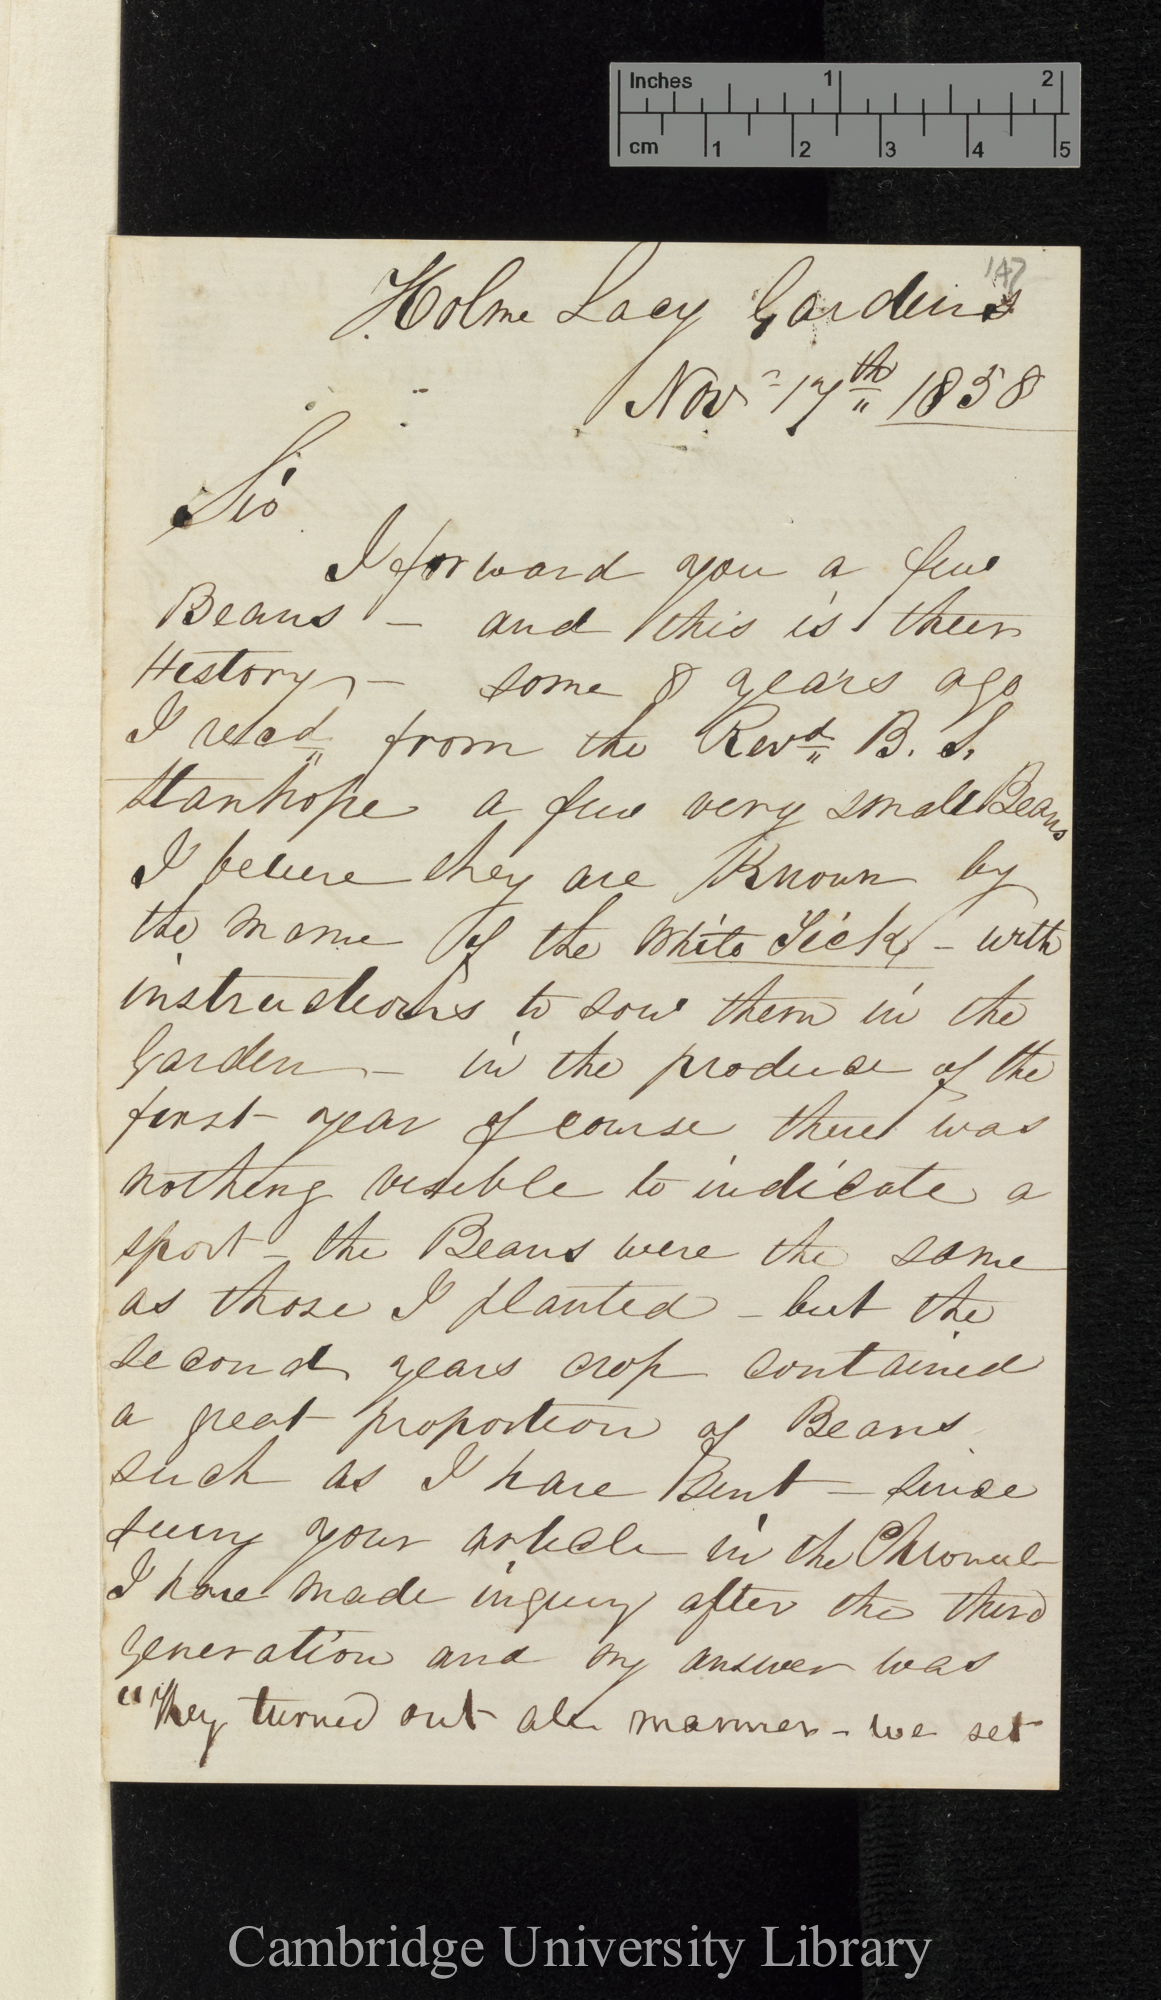 Inches 1 2
cm 1 2 3 4 5
147
Holme Lacy Gardens
Novr 17th 1858
Sir
I forward you a few
Beans – and this is their
History – some 8 years ago
I recd from the Revd B. S.
Stanhope a few very small Beans
I believe they are Known by
the name of the White Tick – with
instructions to sow them in the
Garden – in the produce of the
first year of course there was
nothing visible to indicate a
sport – the Beans were the same
as those I planted – but the
second years crop contained
a great proportion of Beans
such as I have sent – since
seeing your article in the Chronicle
I have made inquiry after the third
generation and my answer was
"They turned out all manner – we set
Cambridge University Library